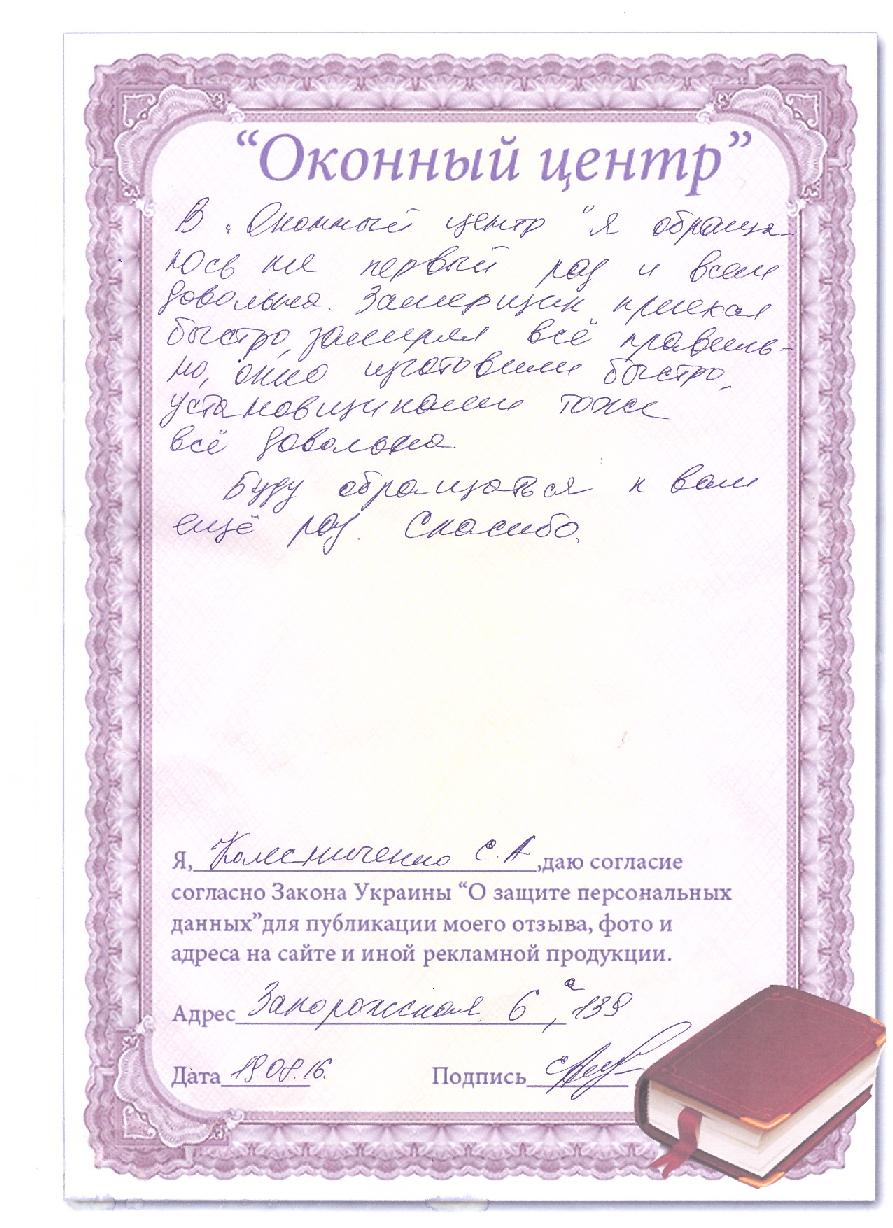 “Оконный центр”
В „Оконный центр" я обраща-
юсь не первый раз и всем
довольна. Замерщик приехал
быстро, замерял всё правиль-
но, окно изготовили быстро,
установщиками тоже
всё довольна.
Буду обращаться к вам
ещё раз. Спасибо.
Я, Колесниченко С.А ,даю согласие
согласно Закона Украины “О защите персональных
данных”для публикации моего отзыва, фото и
адреса на сайте и иной рекламной продукции.
Адрес Запорожская 6а, 139
Дата 19.08.16. Подпись